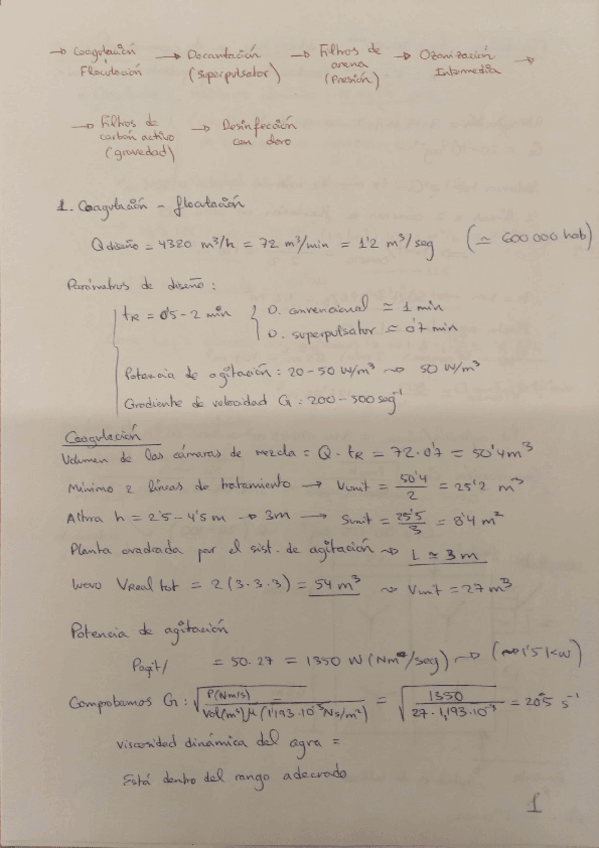 → Coagulación → Decantación → Filtros de → Ozonización →
Floculación (superpulsator) arena Intermedia
(Presión)
→ Filtros de → Desinfección
carbón activo con cloro
(gravedad)
1. Coagulación - floculación
Q diseño = 4320 m³/h = 72 m³/min = 1'2 m³/seg (≃ 600 000 hab)
Parámetros de diseño:
tR = 0'5 - 2 min { D. convencional ≃ 1 min
D. superpulsator ≃ 0'7 min
Potencia de agitación: 20-50 W/m³ ⇝ 50 W/m³
Gradiente de velocidad G: 200-500 seg⁻¹
Coagulación
Volumen de las cámaras de mezcla = Q · tR = 72·0'7 = 50'4 m³
Mínimo 2 líneas de tratamiento → Vunit = 50'4/2 = 25'2 m³
Altura h = 2'5-4'5 m → 3m → Sunit = 25'5/3 = 8'4 m²
Planta cuadrada por el sist. de agitación ⇝ L ≃ 3 m
Luego VReal tot = 2(3·3·3) = 54 m³ ⇝ Vunit = 27 m³
Potencia de agitación
Pagit/ = 50·27 = 1350 W (Nm/seg) ⇝ (≃1'5 KW)
Comprobamos G: √(P(Nm/s) / Vol(m³) μ (1'193·10⁻³ Ns/m²)) = √(1350 / 27·1,193·10⁻³) = 205 s⁻¹
viscosidad dinámica del agua =
Está dentro del rango adecuado
1